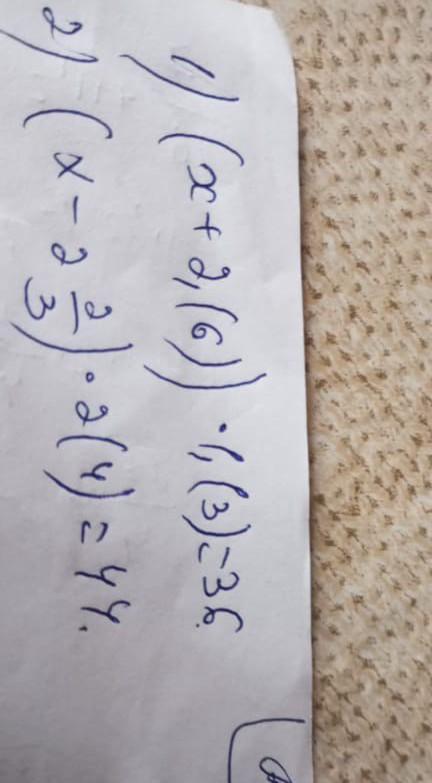 1) (x + 2,(6)) · 1,(3) = 36.
2) (x - 2 2/3) · 2(4) = 44.